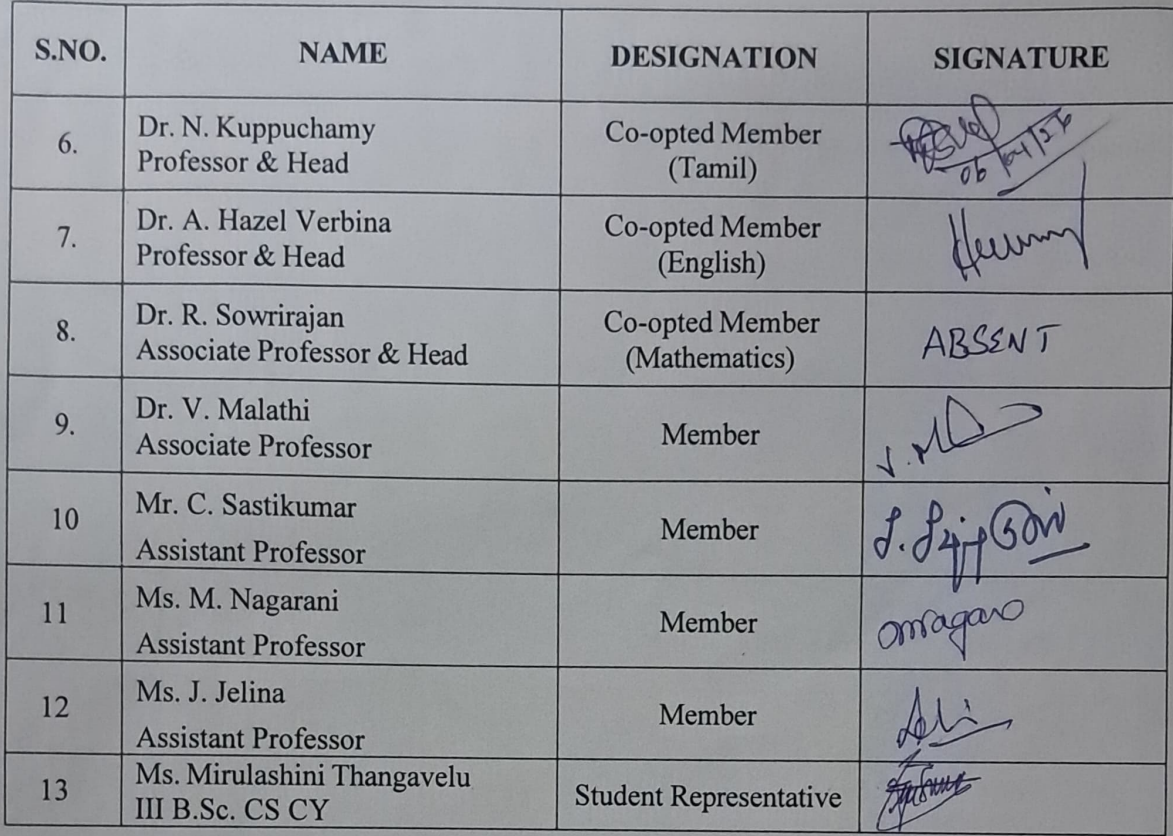 S.NO. NAME DESIGNATION SIGNATURE
6. Dr. N. Kuppuchamy
Professor & Head
Co-opted Member
(Tamil)
06/04/26
7. Dr. A. Hazel Verbina
Professor & Head
Co-opted Member
(English)
8. Dr. R. Sowrirajan
Associate Professor & Head
Co-opted Member
(Mathematics)
ABSENT
9. Dr. V. Malathi
Associate Professor
Member
10 Mr. C. Sastikumar
Assistant Professor
Member
11 Ms. M. Nagarani
Assistant Professor
Member
12 Ms. J. Jelina
Assistant Professor
Member
13 Ms. Mirulashini Thangavelu
III B.Sc. CS CY
Student Representative